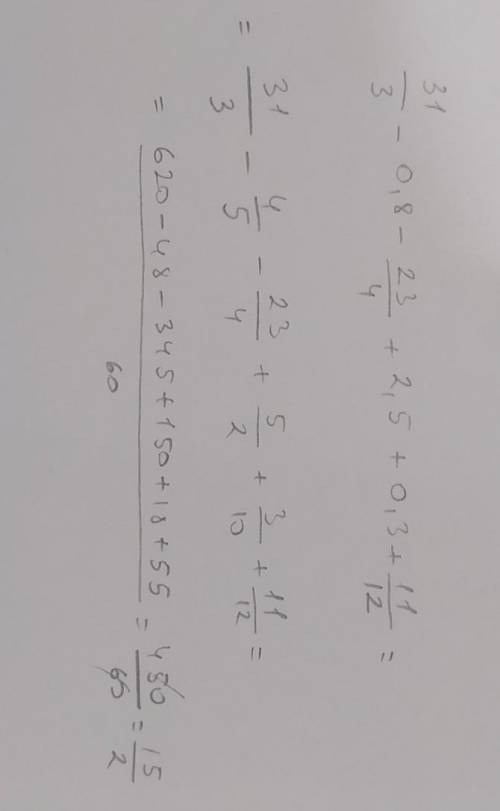 31/3 - 0,8 - 23/4 + 2,5 + 0,3 + 11/12 =
= 31/3 - 4/5 - 23/4 + 5/2 + 3/10 + 11/12 =
= (620 - 48 - 345 + 150 + 18 + 55)/60 = 450/60 = 15/2